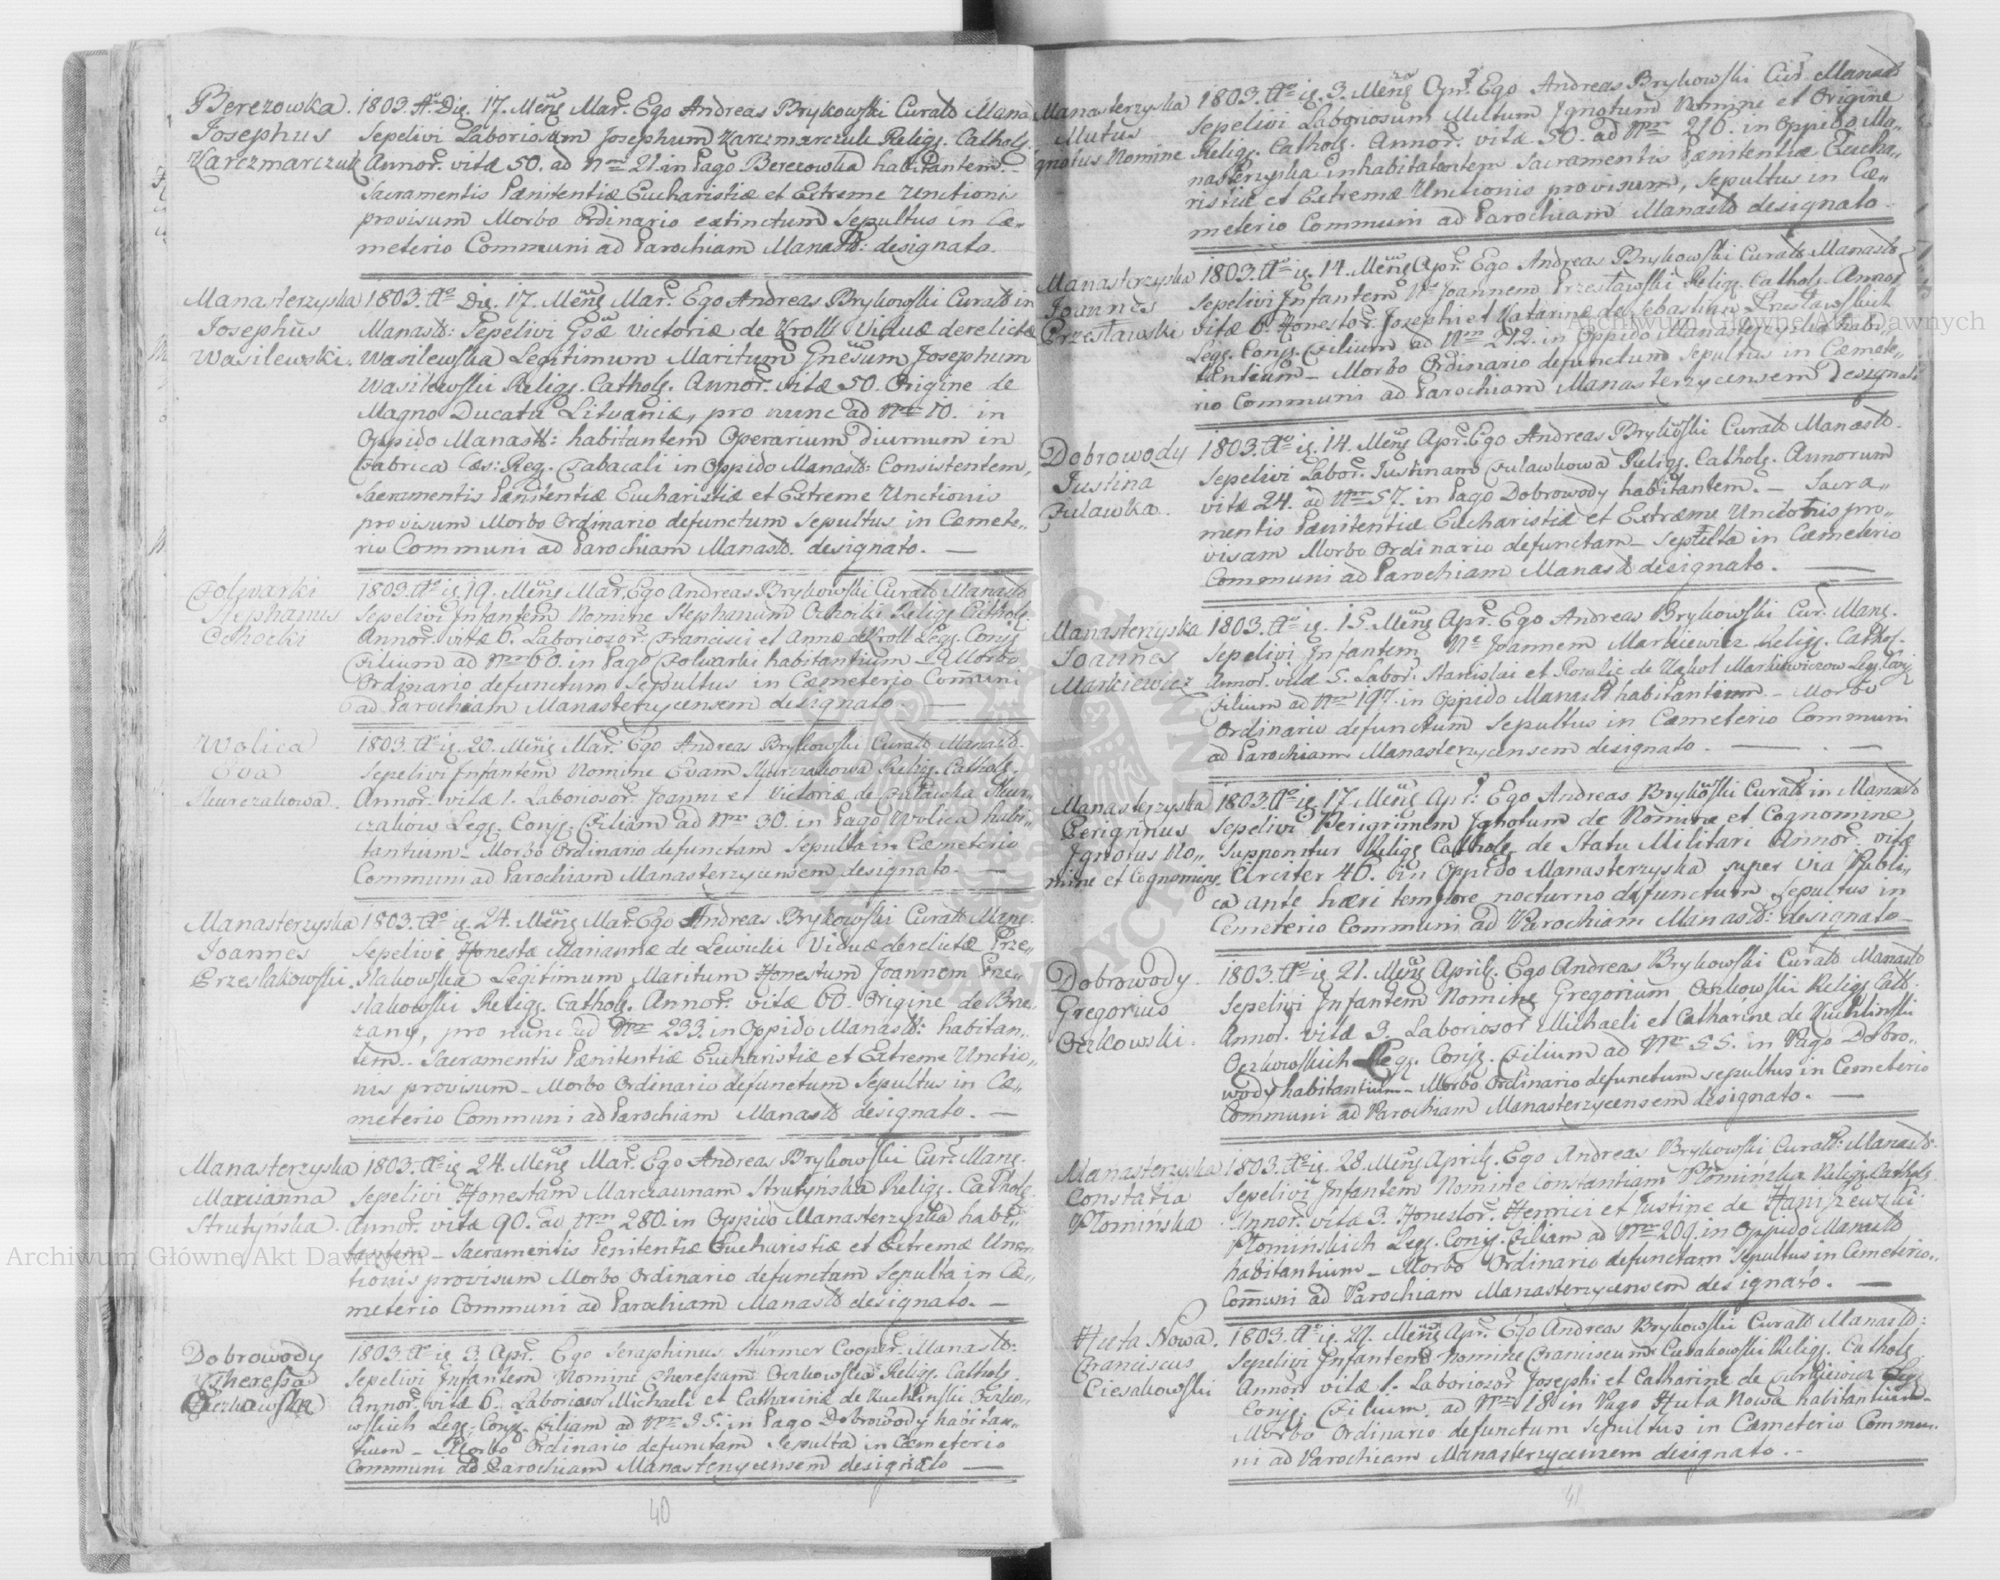 Berezowka.
Josephus
Karczmarczuk
1803. Ao Die. 17. Mens Mar. Ego Andreas Brykowski Curatd Mana
Sepelivi Laboriosum Josephum Karczmarczuk Religs. Cathols.
Annor. vitæ 50. ad Nrm 21. in Pago Berezowka habitantem. –
Sacramentis Pænitentiæ Eucharistiæ et Extreme Unctionis
provisum Morbo Ordinario extinctum Sepultus in Cæ-
meterio Communi ad Parochiam Manastd: designato.
Manasterzyska
Josephus
Wasilewski.
1803. Ao Die. 17. Mens Mar. Ego Andreas Brykowski Curatd in
Manastd: Sepelivi Gsæ Victoriæ de Kroll Viduæ derelictæ
Wasilewska Legitimum Maritum Gnesum Josephum
Wasilewski Religs. Cathols. Annor. vitæ 50. Origine de
Magno Ducatu Lituaniæ, pro nunc ad Nrm 10. in
Oppido Manastd: habitantem Operarium Diurnum in
Fabrica Cæs: Reg. Tabacali in Oppido Manastd: Consistentem,
Sacramentis Pænitentiæ Eucharistiæ et Extreme Unctionis
provisum Morbo Ordinario defunctum Sepultus in Cæmete-
rio Communi ad Parochiam Manastd. designato. —
Folwarki
Stephanus
Cichocki
1803. Ao ig. 19. Mens Mar. Ego Andreas Brykowski Curatd Manastd
Sepelivi Infantem Nomine Stephanum Cichocki Religs Cathols.
Annor. vitæ 6. Laboriosor. Francisci et Annæ de Kroll Legs. Conjs
Filium ad Nrm 60. in Pago Folwarki habitantium – Morbo
Ordinario defunctum Sepultus in Cæmeterio Comuni
ad Parochiam Manasterzycensem designato. —
Wolica
Eva
Skurczakowa.
1803. Ao ig. 20. Mens Mar. Ego Andreas Brykowski Curatd Manastd.
Sepelivi Infantem Nomine Evam Skurczakowa Religs. Cathols.
Annor. vitæ 1. Laboriosor. Joanni et Victoriæ de Pulawska Skur-
czakow Legs. Conjs. Filiam ad Nrm 30. in Pago Wolica habi-
tantium – Morbo Ordinario defunctam Sepulta in Cæmeterio
Communi ad Parochiam Manasterzycensem designato. —
Manasterzyska
Joannes
Przeslakowski.
1803. Ao ig. 24. Mens Mar. Ego Andreas Brykowski Curatd Mans.
Sepelivi Honesta Mariannæ de Lewicki Viduæ derelictæ Prze-
slakowska Legitimum Maritum Honestum Joannem Prze-
slakowski Religs. Cathols. Annor. vitæ 60. Origine de Brze-
zany, pro nunc ad Nrm 233. in Oppido Manastd: habitan-
tem. Sacramentis Pænitentiæ Eucharistiæ et Extreme Unctio-
nis provisum – Morbo Ordinario defunctum Sepultus in Cæ-
meterio Communi ad Parochiam Manastd designato. —
Manasterzyska
Marcianna
Strutyńska.
1803. Ao ig 24. Mens Mar. Ego Andreas Brykowski Cur. Mans.
Sepelivi Honestam Marciannam Strutyńska Religs. Cathols.
Annor. vitæ 90. ad Nrm 280. in Oppido Manasterzyska habi-
tantem – Sacramentis Penitentiæ Eucharistiæ et Extremæ Unc-
tionis provisum Morbo Ordinario defunctam Sepulta in Cæ-
meterio Communi ad Parochiam Manastd designato. —
Dobrowody
Theressa
Oczkowska
1803. Ao ig 3. Apr. Ego Seraphinus Stürmer Cooper. Manastd:
Sepelivi Infantem Nomine Theressam Oczkowska Religs. Cathols.
Annor. vitæ 6. Laboriosor Michaeli et Catharinæ de Kuchlinski Oczko-
wskich Legs. Conjs. Filiam ad Nrm 55. in Pago Dobrowody habitan-
tium – Morbo Ordinario defunctam Sepulta in Cæmeterio
Communi ad Parochiam Manasterzycensem designato —
40
Manasterzyska
Mutus
Ignotus Nomine
1803. Ao ig. 3. Mens Apr. Ego Andreas Brykowski Cur. Manastd
Sepelivi Laboriosum Mutum Ignotum Nomine et Origine
Religs. Cathols. Annor. vitæ 50. ad Nrm 216. in Oppido Ma-
nasterzyska inhabitatentem Sacramentis Pænitentiæ Eucha-
ristiæ et Extremæ Unctionis provisum, Sepultus in Cæ-
meterio Communi ad Parochiam Manastd designato.
Manasterzyska
Joannes
Przesławski
1803. Ao ig. 14. Mens Apr. Ego Andreas Brykowski Curatd Manastd
Sepelivi Infantem Ne Joannem Przesławski Religs. Cathols. Annor
vitæ 6. Honestor. Josephi et Katarinæ de Sebastian Przesławskich
Legs. Conjs. Filium ad Nrm 212. in Oppido Manasterzyska habi-
tantium – Morbo Ordinario defunctum Sepultus in Cæmete-
rio Communi ad Parochiam Manasterzycensem Designato
Dobrowody
Justina
Pulawka.
1803. Ao ig. 14. Mens Apr. Ego Andreas Brykowski Curatd Manastd.
Sepelivi Labor. Justinam Pulawkowa Religs. Cathols. Annorum
vitæ 24. ad Nrm 57. in Pago Dobrowody habitantem. – Sacra-
mentis Pænitentiæ Eucharistiæ et Extræme Unctionis pro-
visam Morbo Ordinario defunctam – Sepulta in Cæmeterio
Communi ad Parochiam Manastd designato. —
Manasterzyska
Joannes
Markiewicz
1803. Ao ig. 15. Mens Apr. Ego Andreas Brykowski Cur. Mans.
Sepelivi Infantem Ne Joannem Markiewicz Religs. Cathols.
Annor. vitæ 5. Labor. Stanislai et Rosalie de Markiewiczow Legs. Conjs
Filium ad Nrm 197. in Oppido Manastd habitantium. – Morbo
Ordinario defunctum Sepultus in Cæmeterio Communi
ad Parochiam Manasterzycensem designato. — . —
Manasterzyska
Perigrinus
Ignotus No-
mine et Cognomine.
1803. Ao ig. 17. Mens Apr. Ego Andreas Brykowski Curatd in Manastd
Sepelivi Perigrinum Ignotum de Nomine et Cognomine,
Supponitur Religs Cathols de Statu Militari Annor. vitæ
Circiter 46. in Oppido Manasterzyska super Via Publi-
ca ante hæri tempore nocturno defunctum, Sepultus in
Cemeterio Communi ad Parochiam Manastd: designato –
Dobrowody.
Gregorius
Oczkowski.
1803. Ao ig 21. Mens Aprils. Ego Andreas Brykowski Curatd Manastd
Sepelivi Infantem Nomine Gregorium Oczkowski Religs Cath.
Annor. vitæ 3. Laboriosor Michaeli et Catharine de Kuchlinski
Oczkowskich Legs. Conjs. Filium ad Nrm 55. in Pago Dobro-
wody habitantium – Morbo Ordinario defunctum sepultus in Cemeterio
Communi ad Parochiam Manasterzycensem designato. —
Manasterzyska
Constatia
Płomińska
1803. Ao ig. 28. Mens Aprils. Ego Andreas Brykowski Curatd: Manastd:
Sepelivi Infantem Nomine Constantiam Płominska Religs. Cathols.
Annor. vitæ 3. Honestor. Henrici et Justine de Haniszewski
Płomińskich Legs. Conjs. Filiam ad Nrm 209. in Oppido Manastd
habitantium – Morbo Ordinario defunctam Sepultus in Cemeterio
Comuni ad Parochiam Manasterzycensem designato. —
Huta Nowa.
Franciscus
Ciesakowski
1803. Ao ig. 29. Mens Apr. Ego Andreas Brykowski Curatd Manastd:
Sepelivi Infantem Nomine Franciscum Religs. Cathols
Annor. vitæ 1. Laboriosor Josephi et Catharine de Legs
Conjs. Filium, ad Nrm 18 in Pago Huta Nowa habitantium –
Morbo Ordinario defunctum Sepultus in Cæmeterio Commu-
ni ad Parochiam Manasterzycensem designato. –
41
Archiwum Główne Akt Dawnych
Archiwum Główne Akt Dawnych